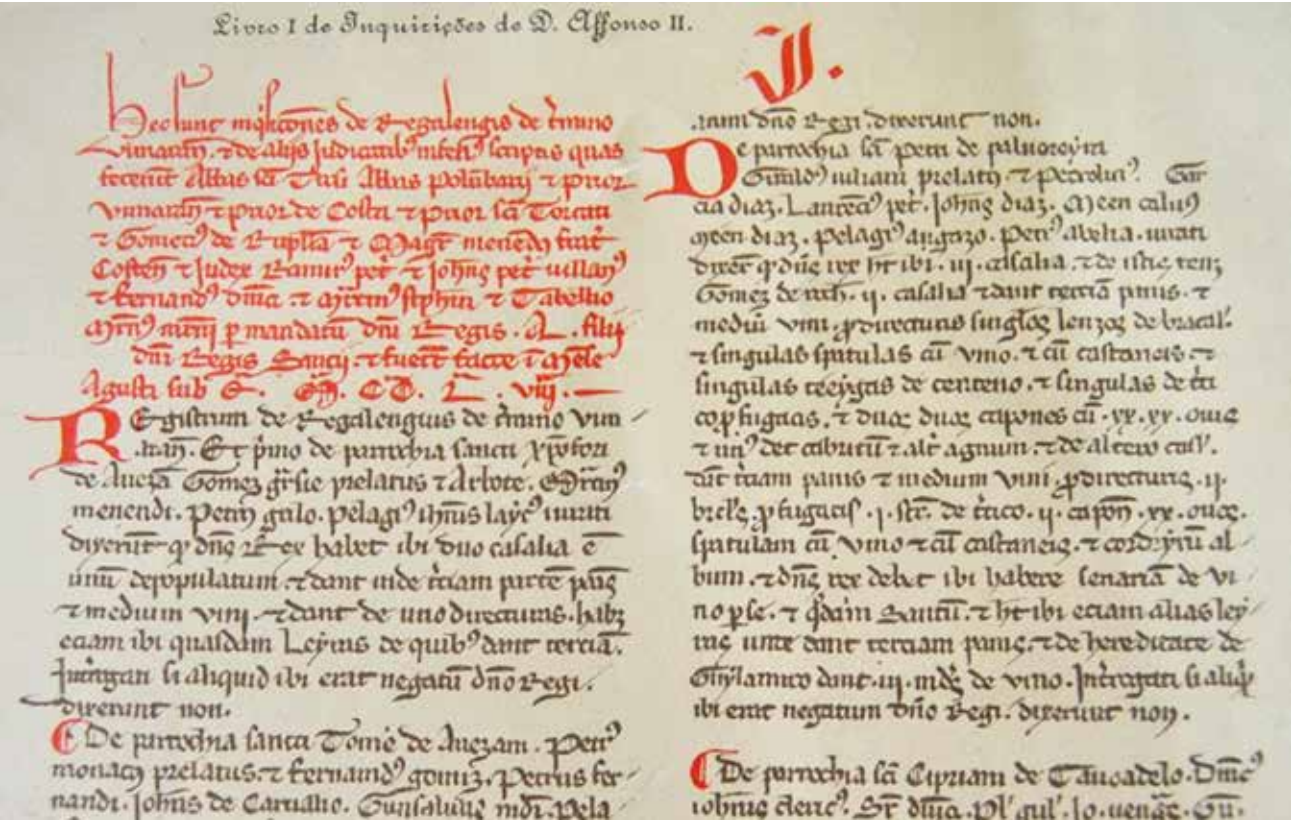 Livro I de Inquirições de D. Affonso II.
I.
Hec sunt inq̇icōnes de Regalengis de t̉mino
Vimaran̄. ⁊ de alijs judicatib⁹ inferi⁹ scriptis quas
fecerūt Abbas sc̄i Tirsi Abbas Polūbarij ⁊ prior
vimaran̄ ⁊ prior de Costa ⁊ prior sc̄i Torcati
⁊ Gomeci⁹ de ⁊ Magr̄ menend⁹
Costeñ ⁊ Judex Ramir⁹ pet̉ ⁊ Johñs pet̉ uillan⁹
⁊ fernand⁹ ⁊ Mr̄tin⁹ stephni ⁊ Tabellio
p mandatū dnī Regis . A . filij
dnī Regis Sancij . ⁊ fuer̄t facte ī Mēse
Agusti sub E. M̄. CC. L. viij. —
REgistrum de Regalengius de t̉mino Vim
aran̄. Et p̉mo de parrochia sancti xp̄ofori
de Auezā Gomez prelatus ⁊ Arlote. Mr̄tin⁹
menendi . Petrus galo . pelagi⁹ layc⁹ iurati
dixerūt q dn̄s Rex habet ibi duo casalia ē
unū depopulatum . ⁊ dant inde t̉ciam partē panis
⁊ medium vini . ⁊ dant de uno directuras . habȝ
eciam ibi quasdam Leyras de quib⁹ dant terciā.
Int̉rogati si aliquid ibi erat negatū dn̄o Regi .
dixerunt non.
De parrochia sancti Tome de Auezam . Petr⁹
monac⁹ prelatus . ⁊ fernand⁹ gomiz . Petrus fer
nandi . Johñs de Carualio . Gunsaluus mn̄di . Pela
ratum dn̄o Regi . dixerunt non.
De parrochia sc̄i Petri de palmoreyra
Girald⁹ iuliani prelat⁹ . ⁊ Gar
cia diaz . Laurēci⁹ pet̉ . Johñs diaz . Meen caluo
Meen diaz . pelagi⁹ . Petr⁹ abelia . iurati
dixer̄t q dn̄s rex ht̄ ibi . iij . casalia . ⁊ de istis tenȝ
Gomez de . ij . casalia ⁊ dant terciā panis . ⁊
mediū vini . p directuris singłos lenzos de bracał.
⁊ singulas spatulas cū vino . ⁊ cū castaneis . ⁊
singulas teeygas de centeno . ⁊ singulas de t̉ti
co p fugacias . ⁊ duos duos capones cū . xx . xx . ouis
⁊ un⁹ det cabritū ⁊ alt̉ agnum . ⁊ de altero cas̉.
dāt t̉ciam panis ⁊ medium vini . p directuris . ij .
p fugacis . j . de t̉tico . ij . capon̄ . xx . ouos .
spatulam cū vino ⁊ cū castaneis . ⁊ al
bum . ⁊ dn̄s rex debet ibi habere senarā de vi
no p se . ⁊ q̇dam Bautū . ⁊ ht̄ ibi eciam alias ley
ras unde dant terciam panis . ⁊ de hereditate de
Ghylamiro dant . iij . de vino . Int̉rogati si aliq̇
ibi erat negatum dn̄o Regi . dixerunt non .
De parrochia sc̄i Cipriani de Tauoadelo .
iohñis cleric⁹ .